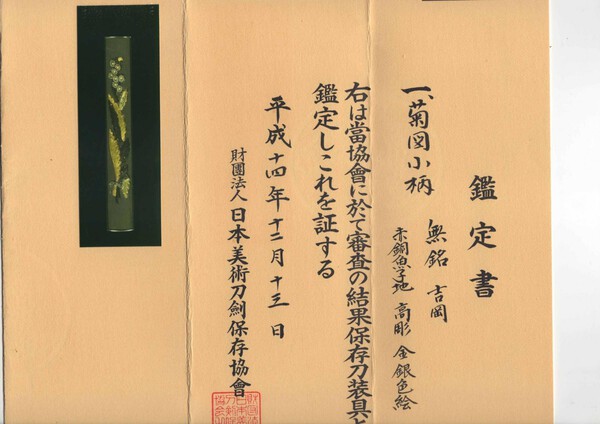 鑑定書
一、菊図小柄
無銘 吉岡
赤銅魚子地 高彫 金銀色絵
右は當協會に於て審査の結果保存刀装具と
鑑定しこれを証する
平成十四年十二月十三日
財團法人 日本美術刀劍保存協會